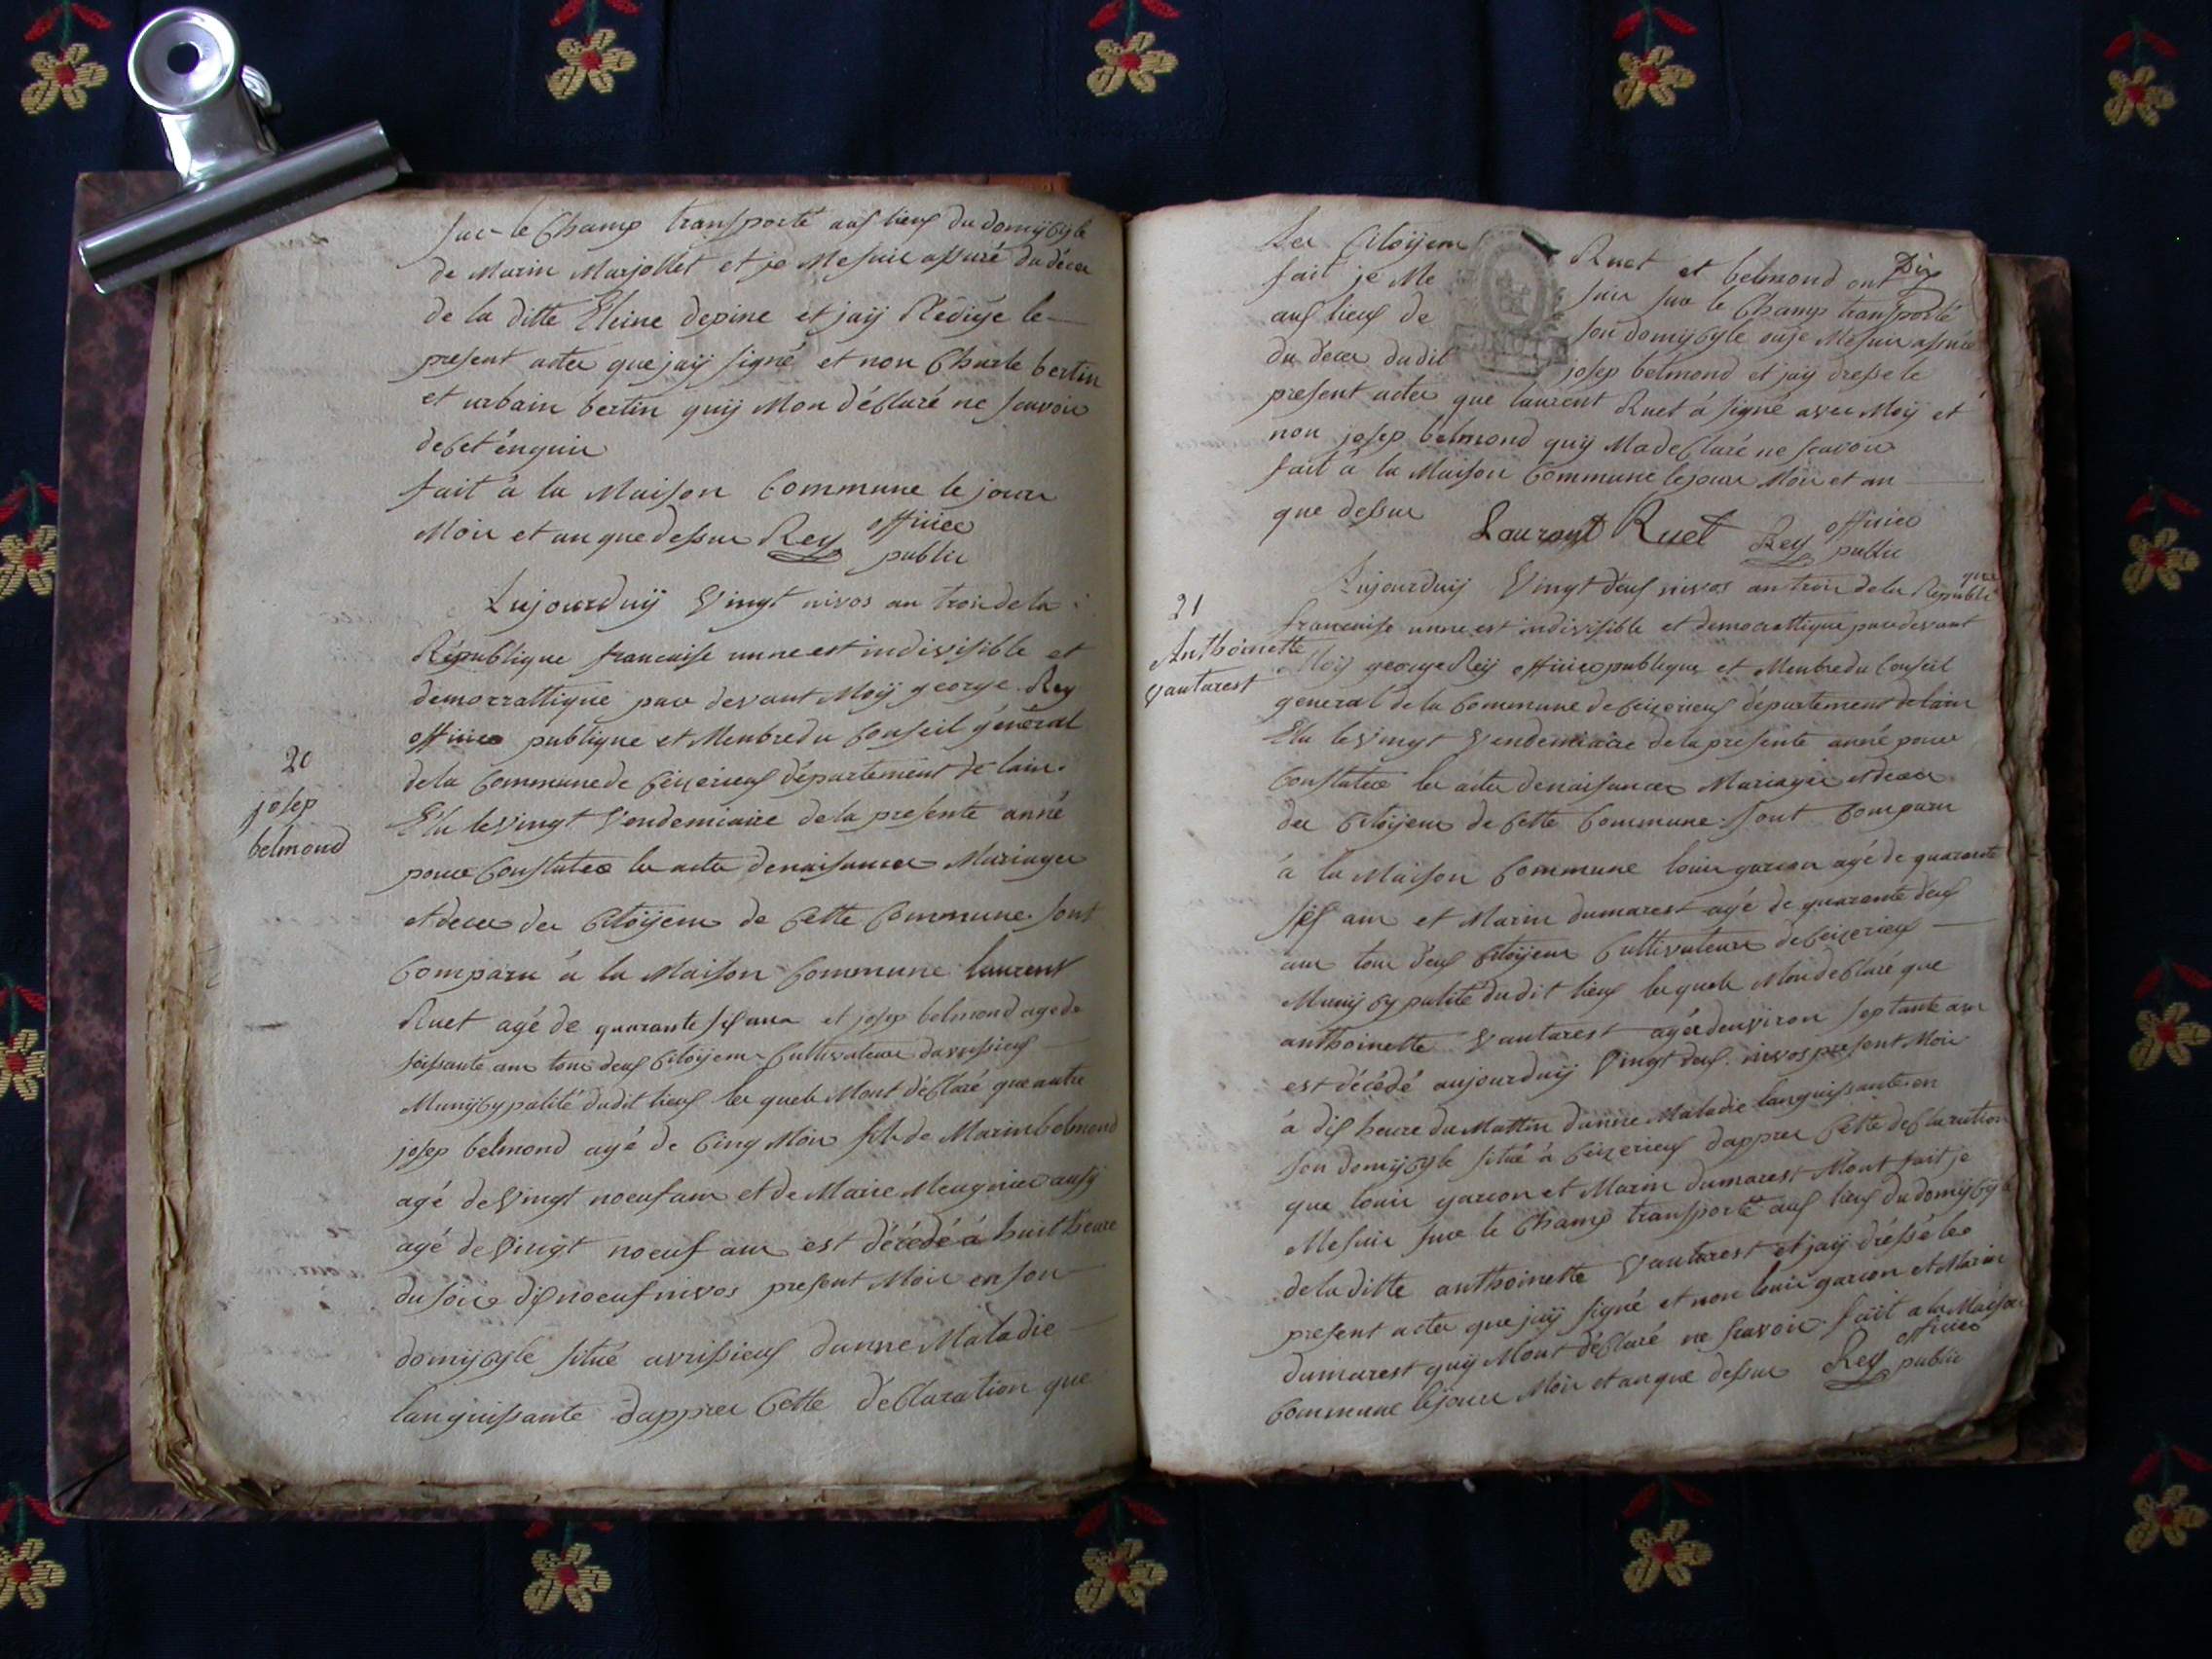 sur le Champ transporté aus lieus du domijcyle
de Marin Marjollet et je Mesuis assuré du décer
de la ditte Eleine depine et jaÿ Rédigé le
present acter que jaÿ signé et non Charle bertin
et urbain bertin quÿ Mon déClaré ne scavoir
de
fait à la Maison Commune le jour
Moir et an que dessur Rey officer
public
20
josep
belmond
Aujourduÿ Vingt nivos an troir de la
République francaise unne est indivisible et
democrattique par devant Moÿ george Rey
officer publique et Menbre du Conseil général
de la Commune de Ceizerieus département de lain
Elu le Vingt Vendemiaire de la presente anné
pour Constater ler acter denaisancer Mariager
et decer der Citoÿens de Cette Commune sont
Comparu à la Maison Commune laurent
Ruet agé de quarante sis ans et josep belmond age de
soissante ans tour deus Citoÿens Cultivateur davrissieus
Munijcypalité dudit lieus ler quels Mont déClaré que autre
josep belmond agé de Cinq Moir fils de Marin belmond
agé de Vingt noeuf ans et de Marie Meugnier aussÿ
agé de Vingt noeuf ans est décédé à huit heure
du soir dis noeuf nivos present Moir en son
domijcyle situé avrissieus dunne Maladie
languissante dapprer Cette déClaration que
Dix
Ler Citoÿens Ruet et belmond ont
fait je Me suis sur le Champ transporté
aus lieus de son domijcyle ou je Mesuis assuré
du décer dudit josep belmond et jaÿ dresse le
present acter que laurent Ruet à signé avec Moÿ et
non josep belmond quÿ Ma déClaré ne scavoir
fait à la Maison Commune le jour Moir et an
que dessur Laurant Ruet Rey officer
public
21
Anthoinette
Vautarest
Aujourduÿ Vingt deus nivos an troir de la République
francaise unne est indivisible et democrattique par devant
Moÿ george Reÿ officer publique et Menbre du Conseil
general de la Commune de Ceizerieus département de lain
Elu le Vingt Vendemiaire de la presente anné pour
Constater ler acter denaisancer Mariager et decer
der Citoÿens de Cette Commune sont Comparu
à la Maison Commune louir garcon agé de quarante
sis ans et Marin dumarest agé de quarente deus
ans tour deus Citoÿens Cultivateurs de Ceizerieus
Munijcypalité dudit lieus ler quels Mon déClaré que
anthoinette Vautarest agée denviron septante ans
est décédé aujourduÿ Vingt deus nivos present Moir
à dis heure du Mattin dunne Maladie languissante en
son domijcyle situé à Ceizerieus dapprer Cette déClaration
que louir garcon et Marin dumarest Mont fait je
Mesuir sur le Champ transporté aus lieus du domijcyle
de la ditte anthoinette Vautarest et jaÿ dréssé le
present acter que jaÿ signé et non louir garcon et Marin
dumarest quÿ Mont déClaré ne scavoir fait a la Maison
Commune le jour Moir et an que dessur Rey officer
public